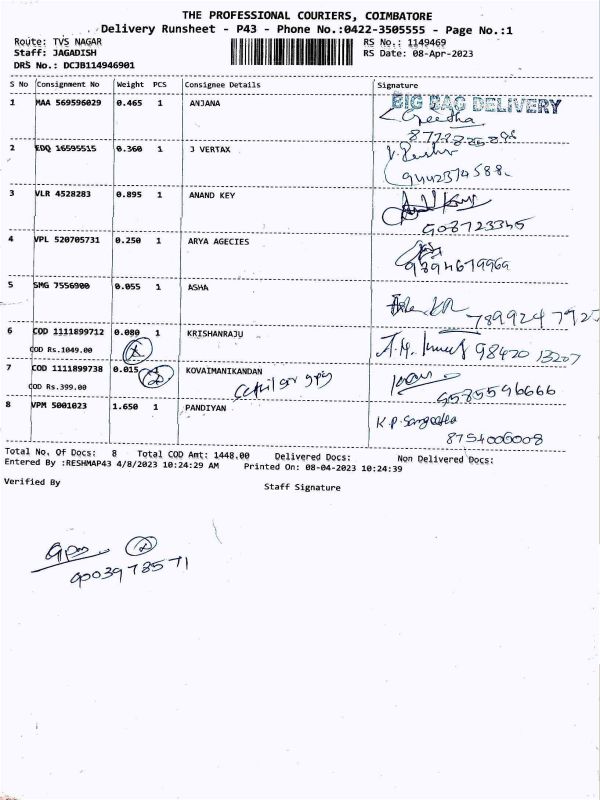 THE PROFESSIONAL COURIERS, COIMBATORE
Delivery Runsheet - P43 - Phone No.:0422-3505555 - Page No.:1
Route: TVS NAGAR RS No.: 1149469
Staff: JAGADISH RS Date: 08-Apr-2023
DRS No.: DCJB114946901
S No Consignment No Weight PCS Consignee Details Signature
BIG BAG DELIVERY
1 MAA 569596029 0.465 1 ANJANA
Geetha
2 EDQ 16595515 0.360 1 J VERTAX
9442374588
3 VLR 4528283 0.895 1 ANAND KEY
4 VPL 520705731 0.250 1 ARYA AGECIES
9394679969
5 SMG 7556900 0.055 1 ASHA
7899247925
6 COD 1111899712 0.080 1 KRISHANRAJU
COD Rs.1049.00 98420 13207
7 COD 1111899738 0.015 KOVAIMANIKANDAN
COD Rs.399.00 9585596666
8 VPM 5001023 1.650 1 PANDIYAN K.P. Sangeetha
8754006008
Total No. Of Docs: 8 Total COD Amt: 1448.00 Delivered Docs: Non Delivered Docs:
Entered By :RESHMAP43 4/8/2023 10:24:29 AM Printed On: 08-04-2023 10:24:39
Verified By Staff Signature
9003978571